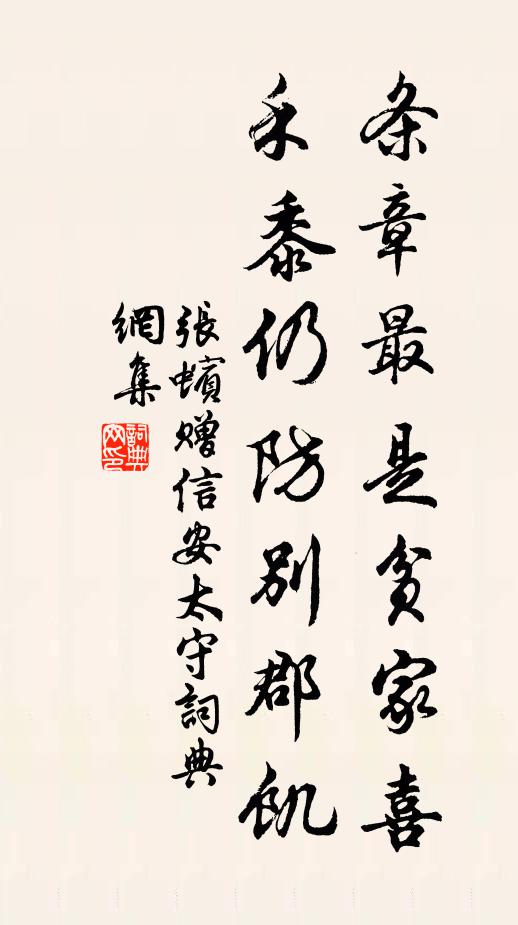 条章最是贫家喜
禾黍仍防别郡飢
張蠙赠信安太守詞典
網集
詞典
网印